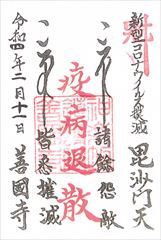 新型コロナウイルス撲滅
毘沙門天
諸餘怨敵
疫病退散
皆悉摧滅
令和四年二月十一日
善國寺